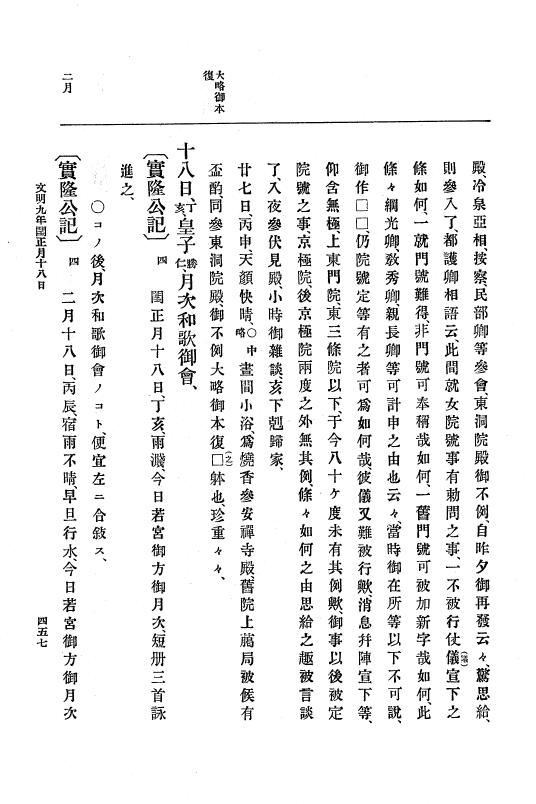 大略御本
復
二月
殿、冷泉亞相、按察、民部卿等參會、東洞院殿御不例、自昨夕御再發云々、驚思給、
則參入了、都護卿相語云、此間就女院號事有勅問之事、一不被行仗儀宣下之
條如何、一就門號難得非門號可奉稱哉如何、一舊門號可被加新字哉如何、此
條々綱光卿、敎秀卿、親長卿等可計申之由也云々、當時御在所等以下不可説、
御作□□、仍院號定等有之者可爲如何哉、彼儀又難被行歟、消息幷陣宣下等、
仰含無極、上東門院、東三條院以下、于今八十ケ度未有其例歟、御事以後被定
院號之事、京極院、後京極院兩度之外無其例、條々如何之由思給之趣被言談
了、入夜參伏見殿、小時御雜談、亥下剋歸家、
廿七日、丙申、天顔快晴、○中略 晝間小浴、爲燒香參安禪寺殿、舊院上﨟局被候有
盃酌、同參東洞院殿、御不例大略御本復□躰也、珍重々々、
十八日、丁亥、皇子勝仁、月次和歌御會、
〔實隆公記〕 四 閏正月十八日、丁亥、雨濺、今日若宮御方御月次、短册三首詠
進之、
○コノ後、月次和歌御會ノコト、便宜左ニ合敍ス、
〔實隆公記〕 四 二月十八日、丙辰、宿雨不晴、早旦行水、今日若宮御方御月次
文明九年閏正月十八日
四五七